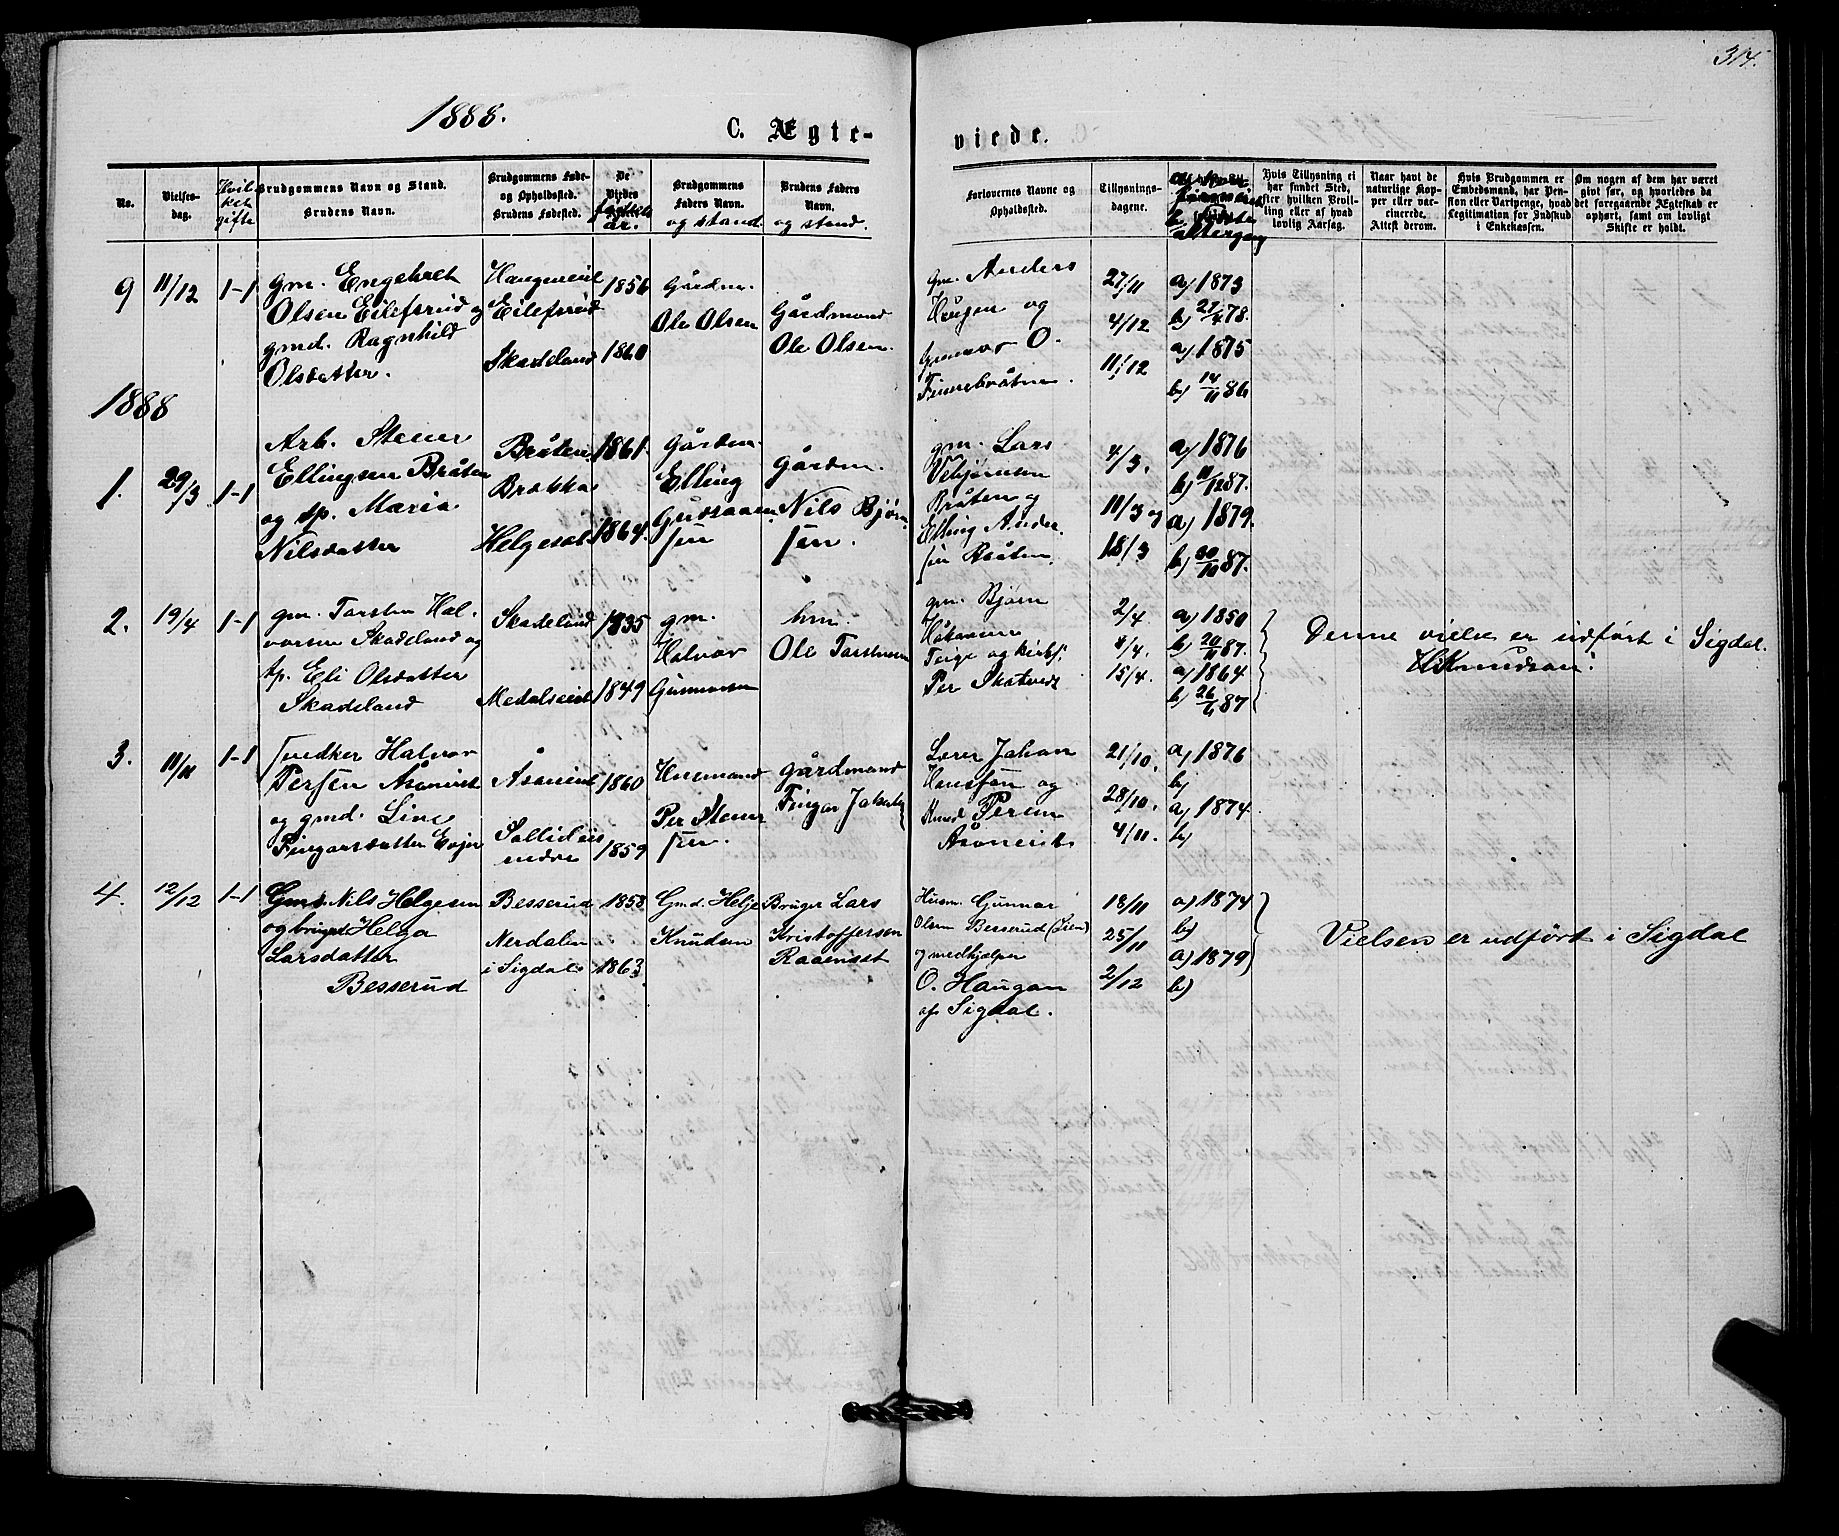 314.
1888.
C. Ægte-
viede.
No.
Vielses-
dag.
Hvil
ket
gifte
Brudgommens Navn og Stand.
Brudens Navn.
Brudgommens Føde-
og Opholdssted.
Brudens Fødested.
De
Viedes
fødsels
år.
Brudgommens
Faders Navn
og stand.
Brudens Faders
Navn.
og stand.
Forlovernes Navne og
Opholdssted.
Tillysnings-
dagene.
altergang
Hvis Tillysning ei
har fundet Sted,
efter hvilken Bevil-
ling eller af hvad
lovlig Aarsag.
Naar havt de
naturlige Kop-
per eller vac-
cinerede.
Attest derom.
Hvis Brudgommen er
Embedsmand, har Pen-
sion eller Vartpenge, hvad
Legitimation for Indskud
i Enkekassen.
Om nogen af dem har været
givt før, og hvorledes da
det foregaaende Ægteskab er
ophørt, samt om lovligt
Skifte er holdt.
9
11/12
1-1
gm. Engebret
Olsen Eilefsrud og
gmd. Ragnhild
Olsdatter.
Haugeneiet
Eilefsrud
Skadeland
1856
1860
Gårdm.
Ole Olsen
Gårdmand
Ole Olsen.
Gm. Anders
Haugen og
Gunnar O.
Finnebråten.
27/11
4/12
11/12
a) 1873
b) 27/4 78.
a) 1875
b) 14/11 86
1888
1.
29/3
1-1
Arb. Stener
Ellingsen Bråten
og tp. Maria
Nilsdatter
Bråten
Brakka
Helgeset
1861.
1864.
Gårdm.
Elling
sen
gårdm.
Nils Bjørn
sen.
gm. Lars
Vebjørnsen
Bråten og
Elling Ander
sen Bråten.
4/3.
11/3 og
18/3
a) 1876
b) 11/12 87.
a) 1879.
b) 30/10 87.
2.
19/4
1-1
gm. Torsten Hal-
vorsen Skadeland og
tp. Eli Olsdatter
Skadeland
Skadeland
Medalseiet
1835
1849
gm.
Halvor
Gunnarsen
hm.
Ole Torstensen
gm. Bjørn
Håkonsen
Teige og kirkes.
Per Skatvedt
2/4.
8/4.
15/4.
a) 1850
b) 20/11 87.
a) 1864
b) 26/6 87
Denne vielse er udført i Sigdal.
HKnudsen.
3.
11/11
1-1
snedker Halvor
Persen Åsoneiet
og gmd. Line
Fingarsdatter Evju
Åsoneiet
Sollideie
nedre
1860
1859
Husmand
Per Stener
sen.
gårdmand
Fingar Jakobs.
Lærer Johan
Hansson og
Knud Persen
Åsoneiet.
21/10.
28/10.
4/11.
a) 1876
b)
a) 1874.
b)
4.
12/12
1-1
Gmd. Nils Helgesen
og brugd. Helga
Larsdatter
Besserud
Besserud
Nerdalen
i Sigdal
1858
1863
Gmd. Helje
Knudsen
Bruger Lars
Kristoffersen
Raaenset
Husm. Gunnar
Olsen Besserud (Lien)
og medhjælper
O. Haugan
af Sigdal.
18/11
25/11
2/12
a) 1874
b)
a) 1879
b)
Vielsen er udført i Sigdal